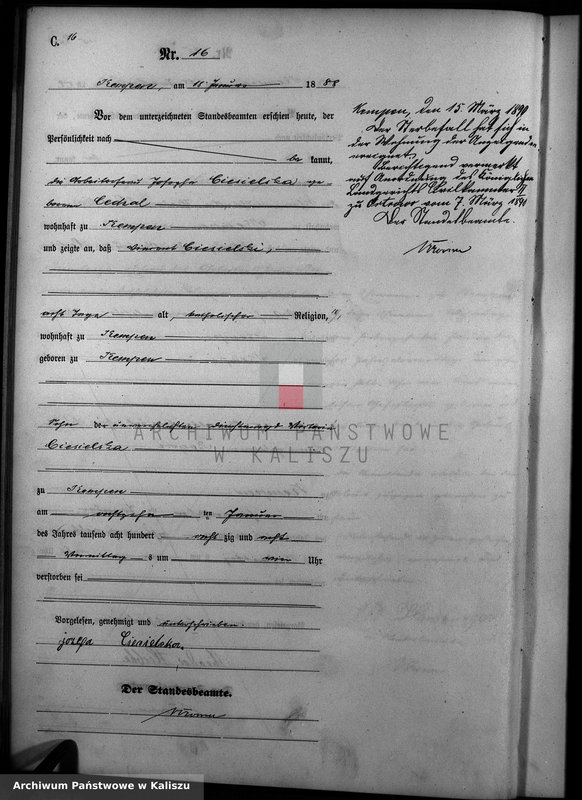 C. 16
Nr. 16
Kempen, am Januar 1888
Vor dem unterzeichneten Standesbeamten erschien heute, der
Persönlichkeit nach
be kannt,
die Josepha Ciesielska ge
borene Cedral
wohnhaft zu Kempen
und zeigte an, daß Vincent Ciesielski,
acht Tage alt, katholischer Religion,
wohnhaft zu Kempen
geboren zu Kempen
Sohn der unverehelichten Dienstmagd
Ciesielska
zu Kempen
am achtzehn ten Januar
des Jahres tausend acht hundert acht zig und acht
Vormittag s um vier Uhr
verstorben sei
Vorgelesen, genehmigt und unterschrieben.
Josefa Ciesielska.
Der Standesbeamte.
Kempen, den 15. März 1890
Der Sterbefall hat sich in
der Wohnung der Anzeigenden
ereignet,
Berichtigend vermerkt
auf Anordnung des Königlichen
Landgerichts Civilkammer II
zu Ostrowo vom 7. März 1890
Der Standesbeamte.
ARCHIWUM PAŃSTWOWE
W KALISZU
Archiwum Państwowe w Kaliszu